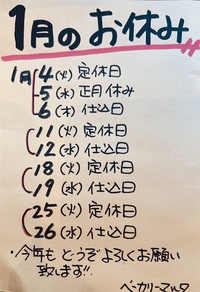 1月のお休み
1月4(火)定休日
5(水)正月休み
6(木)仕込日
11(火)定休日
12(水)仕込日
18(火)定休日
19(水)仕込日
25(火)定休日
26(水)仕込日
・今年もどうぞよろしくお願い
致します!!
ベーカリーマルタ